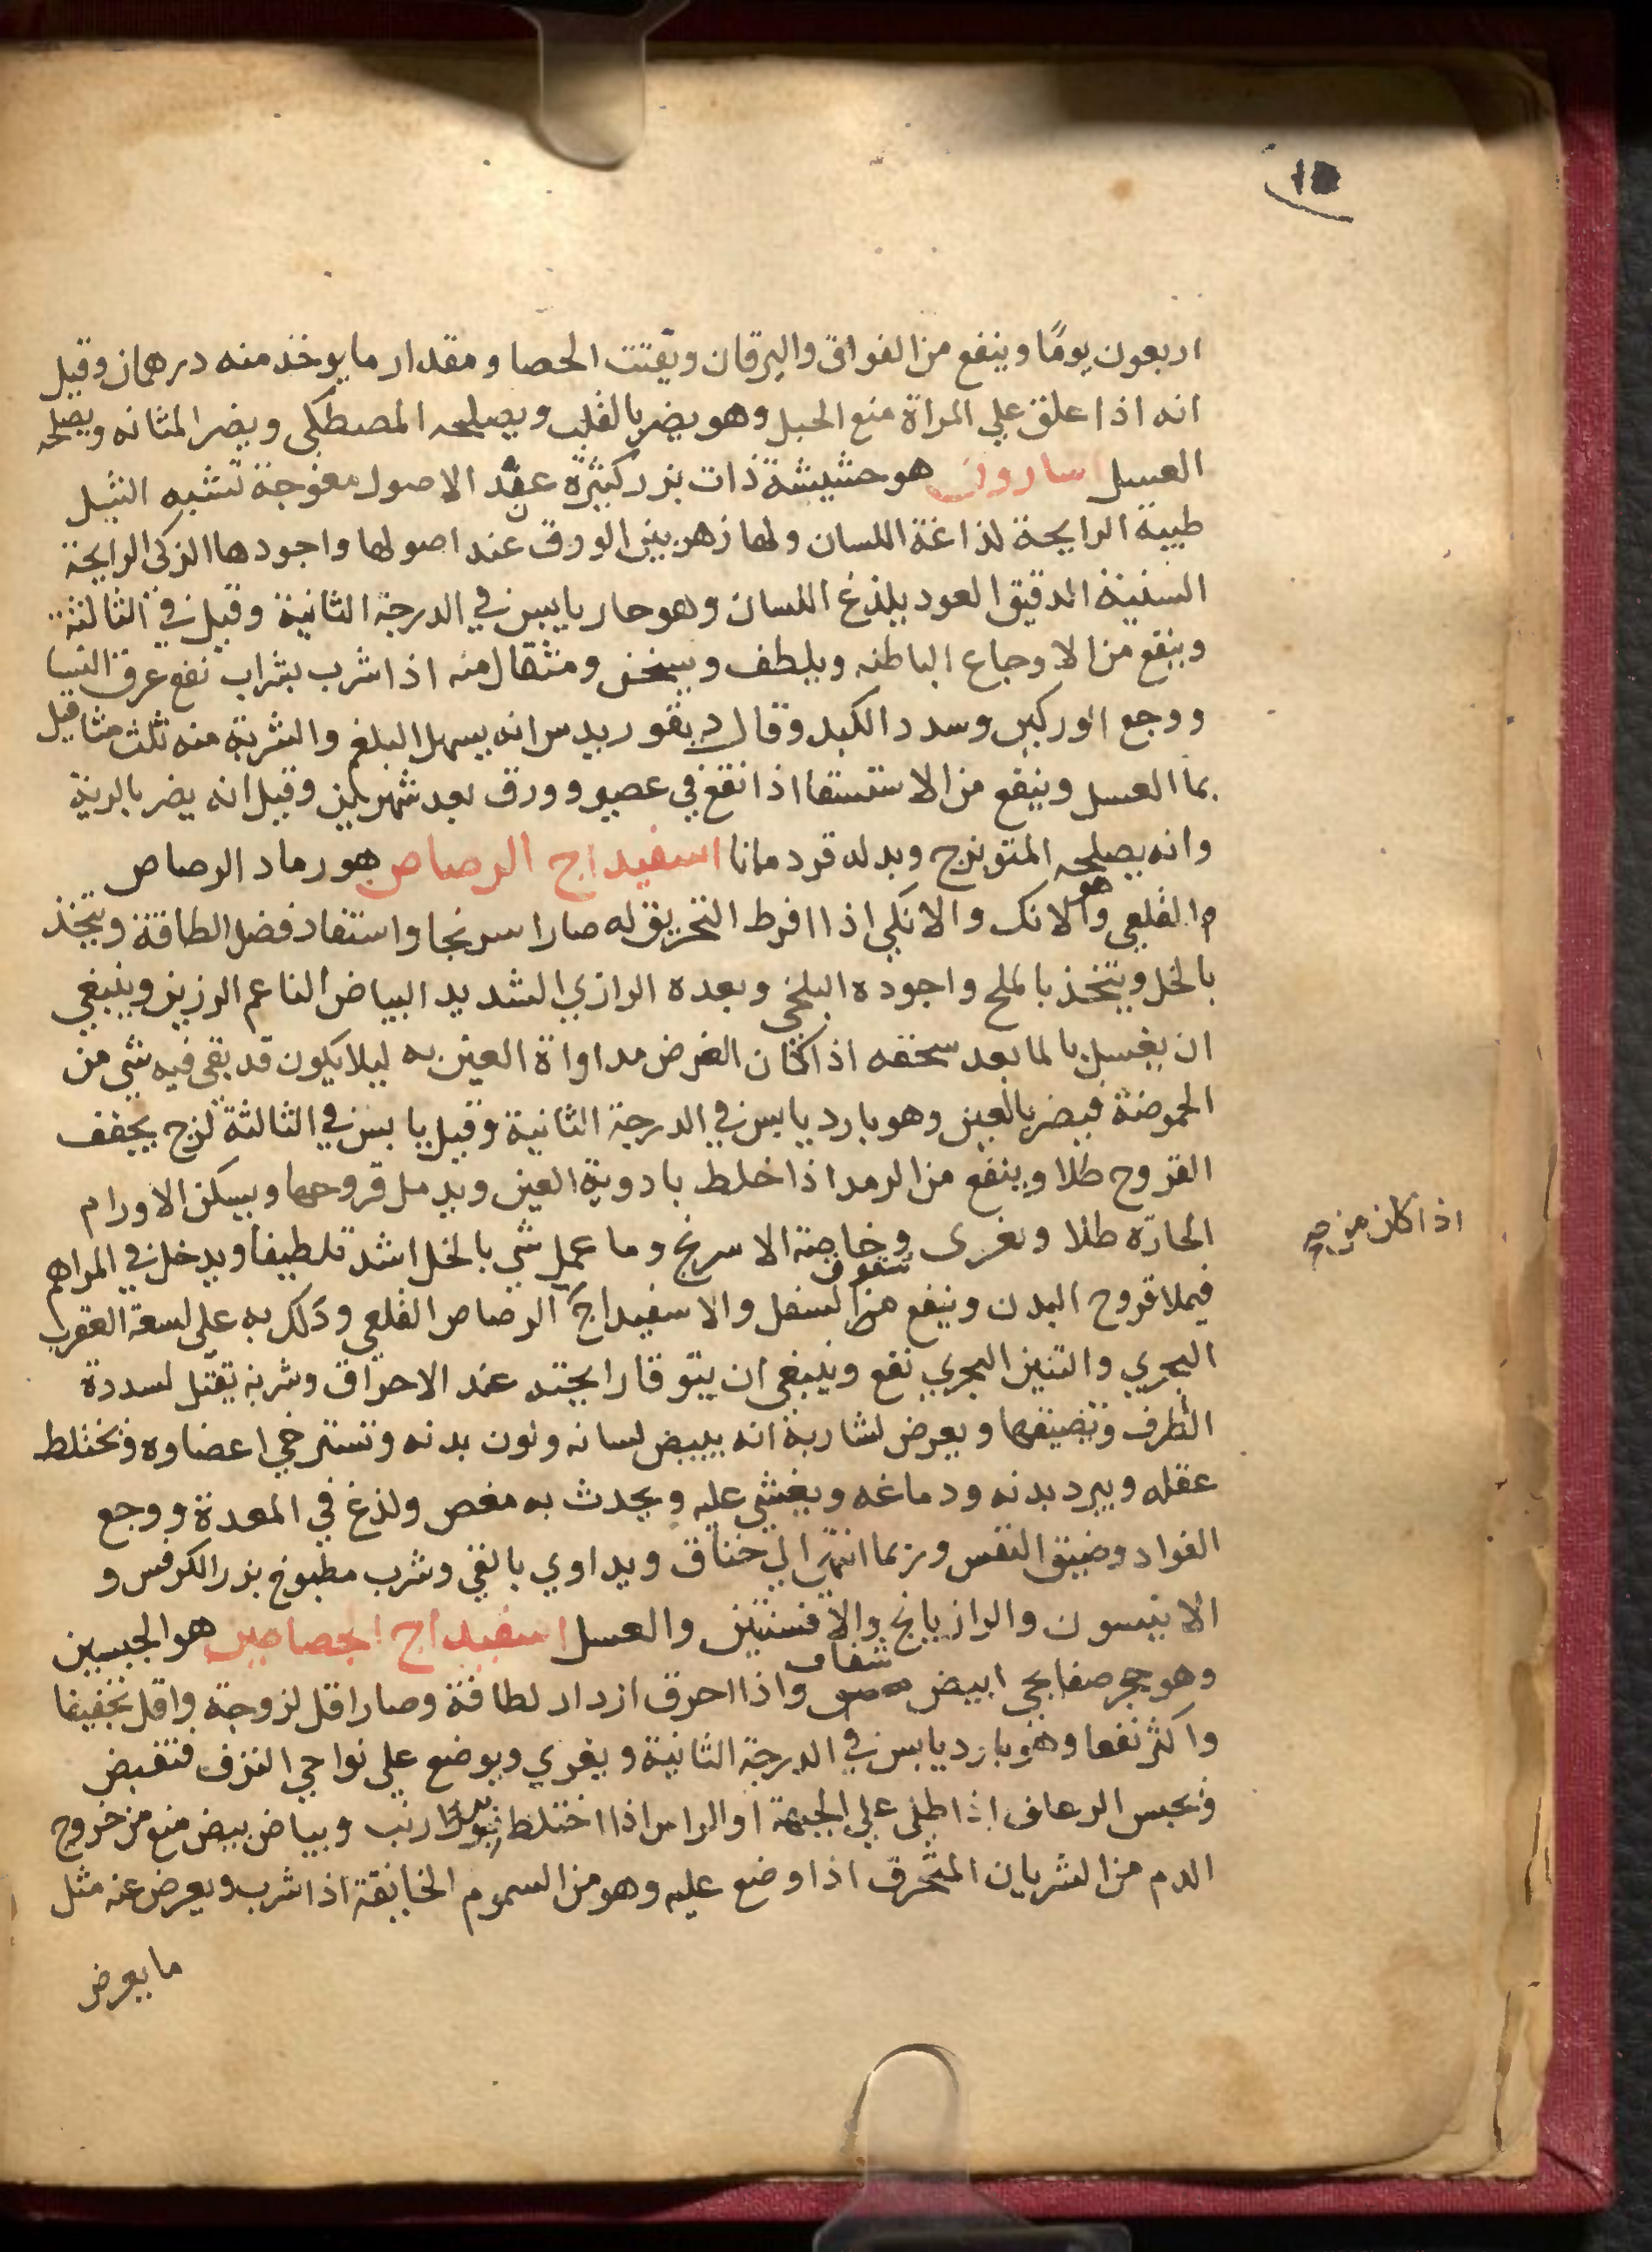 ١٥
اربعون يومًا وينفع من الفواق واليرقان ويفتت الحصا ومقدار ما يوخذ منه درهمان وقيل
انه اذا علق علي المراة منع الحبل وهو يضر بالقلب ويصلحه المصطكي ويضر المثانه ويصلحه
العسل اسارون هو حشيشة ذات بزر كثيرة عقد الاصول معوجة تشبه الثيل
طيبة الرايحة لذاغة اللسان ولها زهر بين الورق عند اصولها واجودها الزكي الرايحة
الدقيق العود يلذغ اللسان وهو حار يابس في الدرجة الثانية وقيل في الثالثة
وينفع من الاوجاع الباطنه ويلطف ويسخن ومثقال منه اذا شرب بشراب نفع عرق النسا
ووجع الوركين وسدد الكبد وقال ديقوريدس انه يسهل البلغم والشربة منه ثلث مثاقيل
بما العسل وينفع من الاستسقا اذا نقع في عصير وورق بعد شهرين وقيل انه يضر بالرية
وانه يصلحه الميويزج وبدله قردمانا اسفيداج الرصاص هو رماد الرصاص
القلعي هو والانك والانكي اذا افرط التحريق له صار اسرنجا واستفاد فضل الطافة ويتخذ
بالخل ويتخذ بالملح واجوده البلخي وبعده الرازي الشديد البياض الناعم الرزين وينبغي
ان يغسل بالما بعد سحقه اذا كان الغرض مداواة العين به ليلا يكون قد بقي فيه شي من
الحموضة فيضر بالعين وهو بارد يابس في الدرجة الثانية وقيل يابس في الثالثة لزج يجفف
القروح طلا وينفع من الرمد اذا خلط بادوية العين ويدمل قروحها ويسكن الاورام
الحارّه طلا ويغرى وخاصة الاسرنج وما عمل شي بالخل اشد تلطيفا ويدخل في المراهم
اذا كان من
فيملا قروح البدن وينفع من شقوق السفل والاسفيداج الرصاص القلعي ودلك به علي لسعة العقرب
البحري والتنين البحري نفع وينبغي ان يتوقا رايحته عند الاحراق وشربه يقتل لسددة
الطرف وتضيقها ويعرض لشاربه انه يبيض لسانه ولون بدنه وتسترخي اعضاوه وتختلط
عقله ويبرد بدنه ودماغه ويغشي عليه ويحدث به مغص ولذغ في المعدة ووجع
الفواد وضيق النفس وربما انتهي الي خناق ويداوي بالقي وشرب مطبوخ بزر الكرفس و
الانيسون والرازيانج والافسنتين والعسل اسفيداج الجصاصين هو الجبسين
وهو حجر صفايحي ابيض شفاف واذا احرق ازداد لطافة وصار اقل لزوجة واقل تجفيفا
واكثر نفعا وهو بارد يابس في الدرجة الثانية ويغري ويوضع علي نواحي النزف فتقبض
وتحبس الرعاف اذا طلي علي الجبهة او الراس اذا اختلط بوبر ارنب وبياض بيض منع من خروج
الدم من الشريان المتحرق اذا وضع عليه وهو من السموم الخانقة اذا شرب ويعرض عنه مثل
ما يعرض